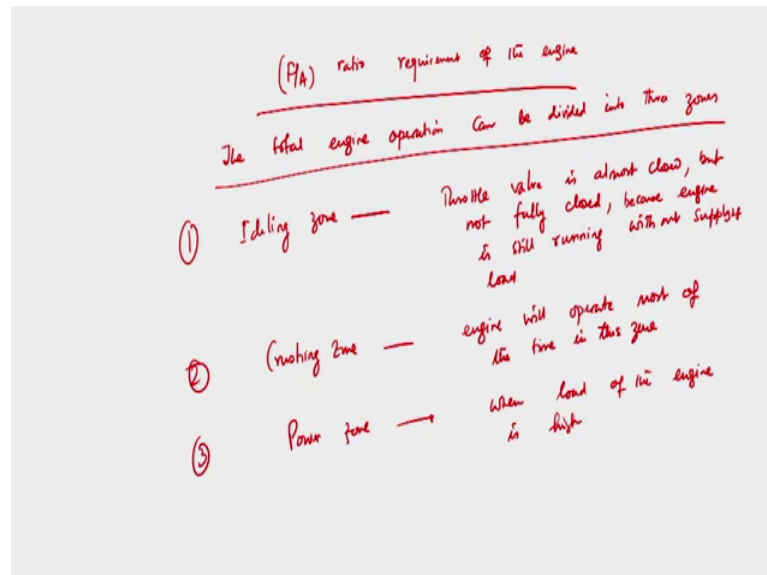 (F/A) ratio requirement of the engine
The total engine operation can be divided into three zones
① Idling zone — Throttle valve is almost close, but
not fully closed, because engine
is still running without supply of
load
② Crushing zone — engine will operate most of
the time in this zone
③ Power zone → when load of the engine
is high